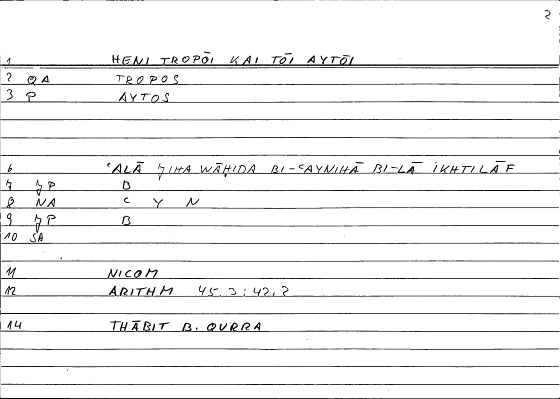 2
1 HENI TROPŌI KAI TŌI AYTŌI
2 QA TROPOS
3 P AYTOS
6 ʿALĀ ǦIHA WĀḤIDA BI-ʿAYNIHĀ BI-LĀ IKHTILĀF
7 ǦP B
8 NA ʿ Y N
9 ǦP B
10 SA
11 NICOM
12 ARITHM 45.3:42.2
14 THĀBIT B. QURRA